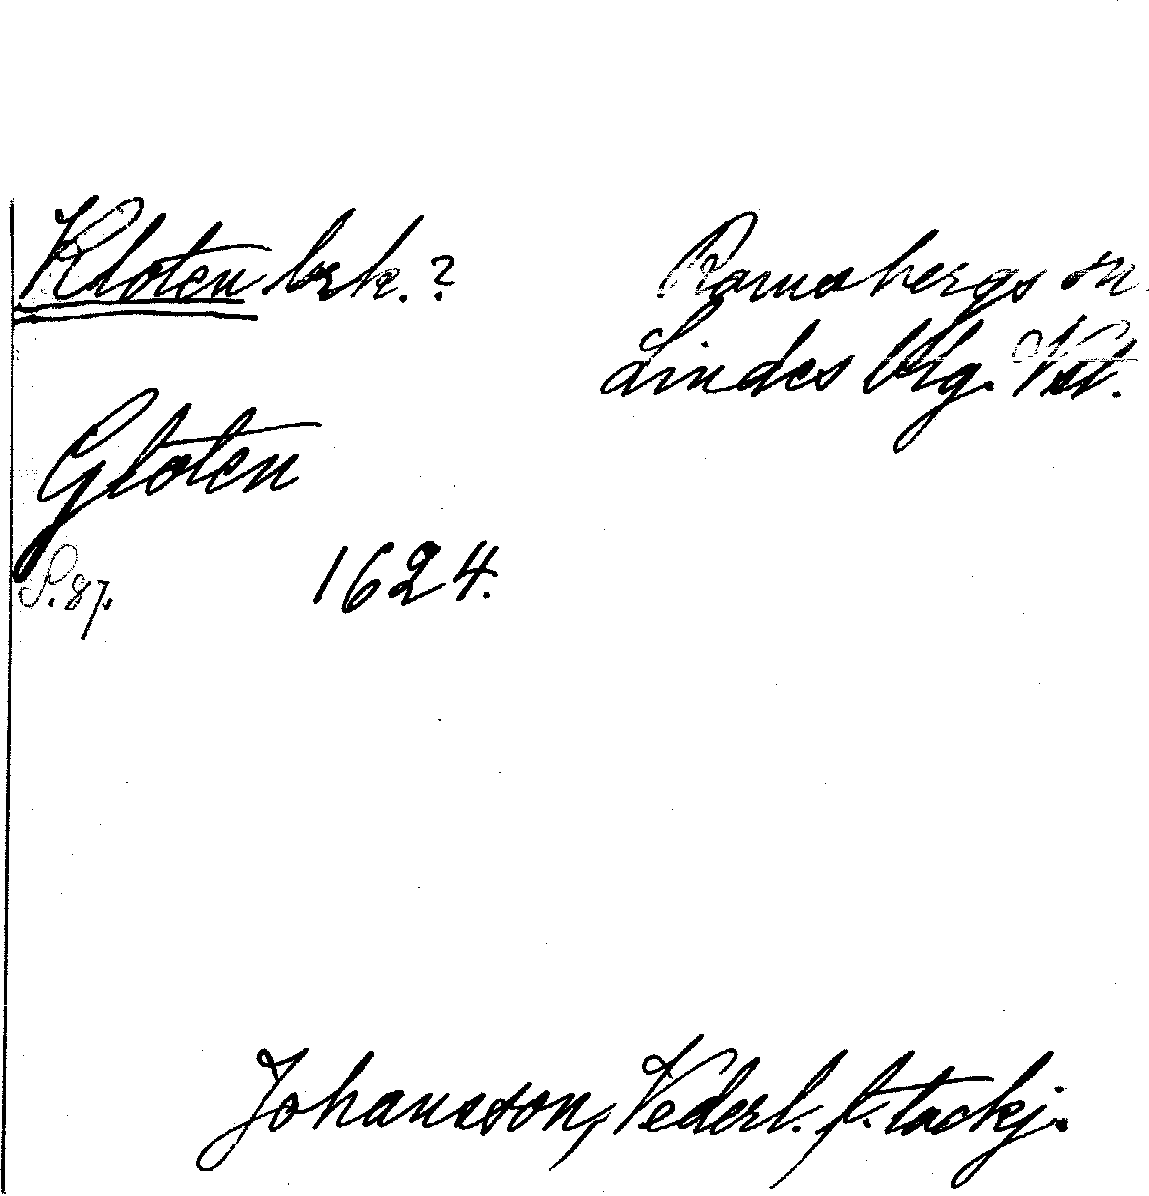 Kloten brk.?
Ramsbergs sn
Lindes blg. Vstl.
Gloten
S. 87. 1624.
Johansson, Vederl. f. tackj.